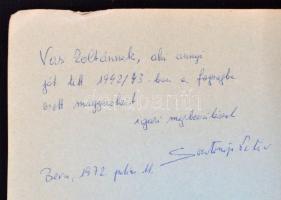 Vas Zoltánnak, aki annyi
jót tett 1942/43-ban a fogságba
esett magyarokért
igazi megbecsüléssel
Bern, 1972 febr 11.